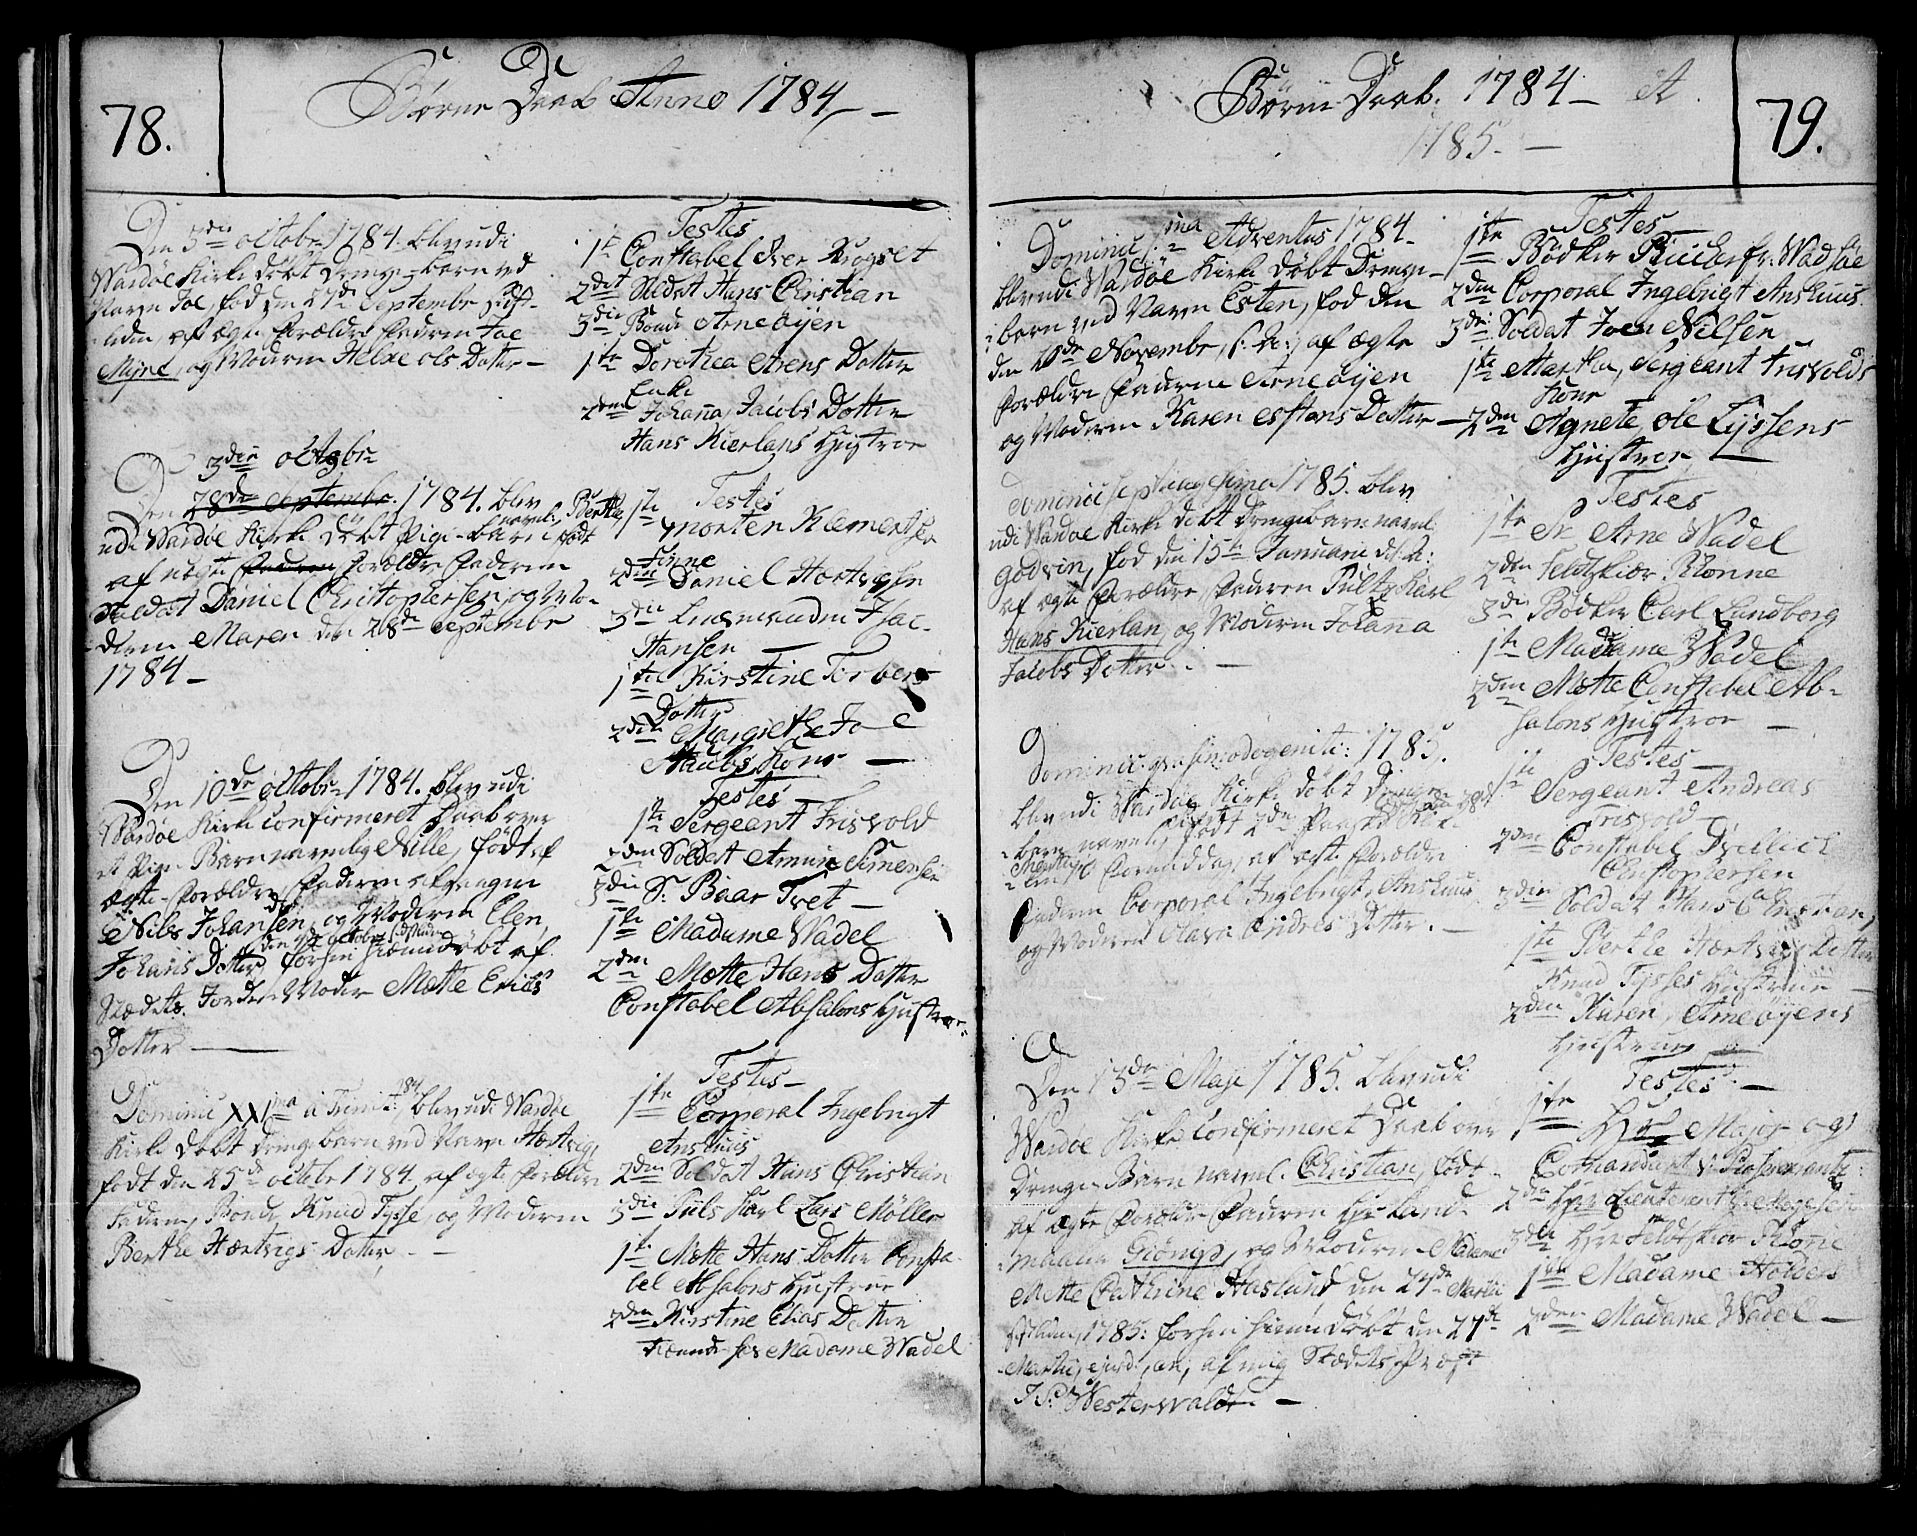 78.
Børne Daab Anno 1784
Den 3die octobr 1784. blev udi
Wardøe Kirke döbt Drenge-barn ved
Navn Joe, fød den 27de Septembr
af ægte Forældre Faderen Joe
Myre, og Moderen Helde ols Dotter
Testes
1te Constabel Iver Krogset
2det Soldat Hans Christian
3die Bonde Arne Øÿen
1te Dorothea Arens Dotter
Enke
2den Johanna Jacobs Dotter
Hans Kierlans Hustroe
3die octobr
Den 28de Septembr. 1784. blev
udi Wardøe Kirke döbt Pige-barn navnl. Berthe, födt
af uægte Faderen Forældre Faderen
Soldat Daniel Christophersen, og Mo-
deren Maren den 28de Septembr
1784
Testes
1te Morten Klementsen
Finne
2den Daniel Hartvigsen
3die Isac
Hansen
1te Kirstine Torbers
Dotter
2den Margrethe Joe
Staubs Kone
Den 10de octobr 1784. blev udi
Wardøe Kirke confirmeret Daab over
et Pige Barn navnlig Nille, födt af
ægte Forældre, Faderen
Nils Johansen, og Moderen Elen
Johans Dotter, den 4de octobr
forhen hiemmedöbt af
Stædets Jorde Moder Mette Erics
Dotter
Testes
1te Sergeant Frisvold
2den Soldat Armun Simensen
3die Sr. Baar Tvet
1te Madame Wadel
2den Mette Hans Dotter
Constabel Absalons Hustroe
Dominic XXI ma a Trinit: 1784 blev udi Wardøe
Kirke döbt Drenge barn ved Navn Hartvig,
födt den 25de octobr 1784. af ægte Forældre
Faderen, Bonde Knud Tysse, og Moderen
Berthe Hartvigs Dotter
Testes
1te Corporal Ingebrigt
Anshuus
2den Soldat Hans Christian
3die Lars Møller
1te Mette Hans Dotter Consta-
bel Absalons Hustroe
2den Kirstine Elias Dotter
tienende hos Madame Wadel
Børne Daab. 1784 et
1785.
79.
Dominic: 1ma Adventus 1784
blev udi Wardøe Kirke döbt Drenge-
barn ved Navn Esten, fød den
Novembr, af ægte
Forældre Faderen Arne Øÿen
og Moderen Karen Estens Dotter
Testes
1te Bødker fr. Wadsøe
2den Corporal Ingebrigt Anshuus
3die Soldat Joen Nilsen
1te Martha, Sergeant Frisvolds
Kone
2den Agnete, Ole Tyssens
Hustroe
Dominic septuagesima 1785. blev
udi Wardøe Kirke döbt Drengebarn navnl
Godvin, fød den 15de Januarii
af ægte Forældre, Faderen
Hans Kierlan, og Moderen Johanna
Jacobs Dotter
Testes
1te Sr. Arne Wadel
2den Feldtskiær Rönne
3die Bødker Carl Landborg
1te Madame Wadel
2den Mette Constabel Ab-
salons Hustroe
Dominic: quasimodogeniti: 1785.
blev udi Wardøe Kirke döbt Drenge-
barn navnl. födt 2den Paaske
Formiddag, af ægte Forældre
Faderen Corporal Ingebrigt Anshuus
og Moderen Olava Endres Dotter
Testes
1te Sergeant Andreas
Frisvold
2den Constabel Didlich
Christophersen
3die Soldat Hans Christian,
1te Berthe Hartvigs Dotter
Knud Tysses Hustrue
2den Karen, Arne Øyens
Hustrue
Den 13de Maji 1785. blev udi
Wardøe Kirke Confirmeret Daab over
Drenge Barn navnl. Christian, födt
af ægte Forældre Faderen Hr: Land-
maaler Giönge, og Moderen Madame
Mette Cathrine Haslund, den 24de Martii
1785: forhen hiemmedöbt den 27de
Martii, af mig Stædets Præst
J P: Westerwaldt
Testes
1te Hr: Major og
Comandant v: Rosencrantz
2den Hr: Lieutenant
3die Hr: Feldtskiær Rönne
1te Madame Holders
2den Madame Wadel